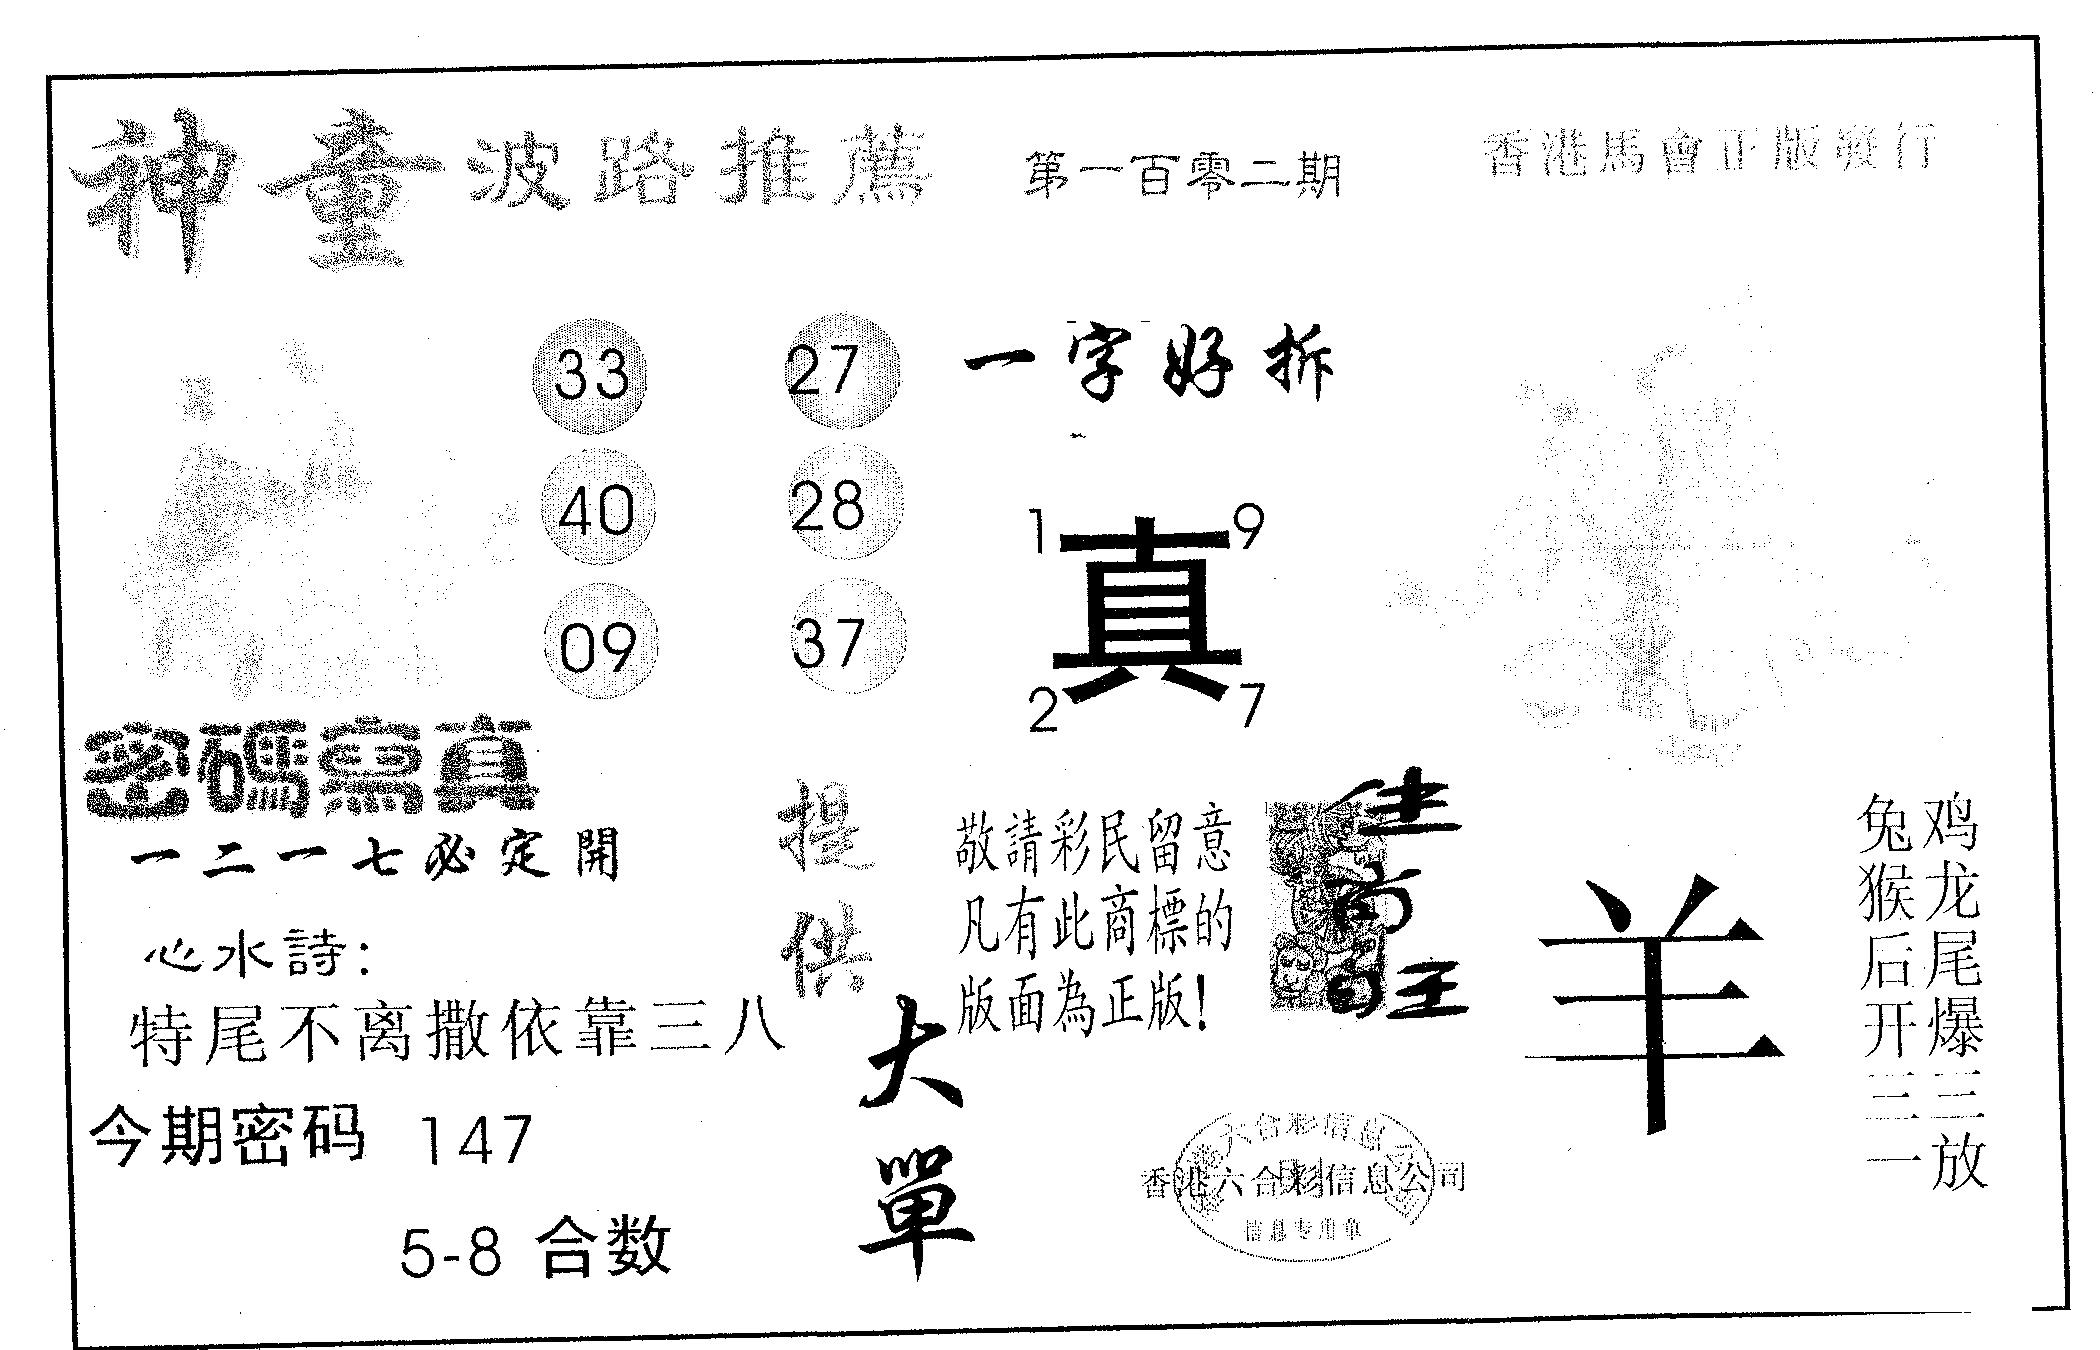 神童波路推薦
第一百零二期
香港馬會正版發行
33 27
40 28
09 37
一字好拆
1 9
真
2 7
密碼寫真
一二一七必定開
心水詩：
特尾不离撒依靠三八
今期密码 147
5-8 合数
提供
大單
敬請彩民留意
凡有此商標的
版面為正版!
羊
鸡龙尾爆三放
兔猴后开三一
香港六合彩信息公司
信息专用章